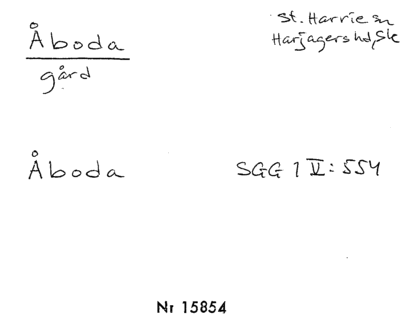 Åboda
gård
St. Harrie sn
Harjagers hd, Sk
Åboda
SGG 1 V: 554
Nr 15854